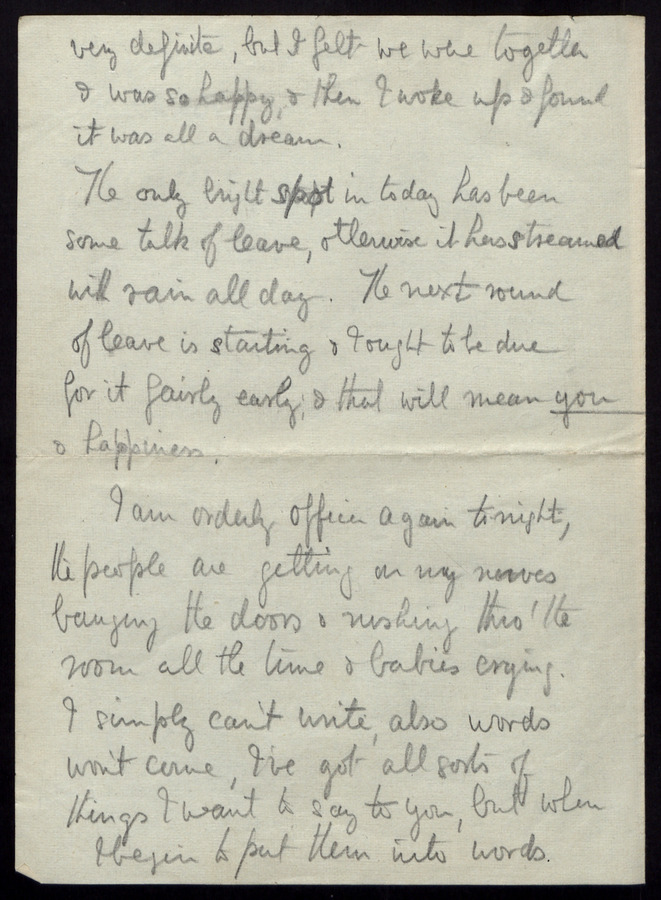 very definite, but I felt we were together
& was so happy, & then I woke up & found
it was all a dream.
The only bright spot in today has been
some talk of leave, otherwise it has streamed
with rain all day. The next round
of leave is starting & I ought to be due
for it fairly early, & that will mean you
& happiness.
I am orderly officer again tonight,
the people are getting on my nerves
banging the doors & rushing thro' the
room all the time & babies crying.
I simply can't write, also words
won't come, I've got all sorts of
things I want to say to you, but when
I begin to put them into words.